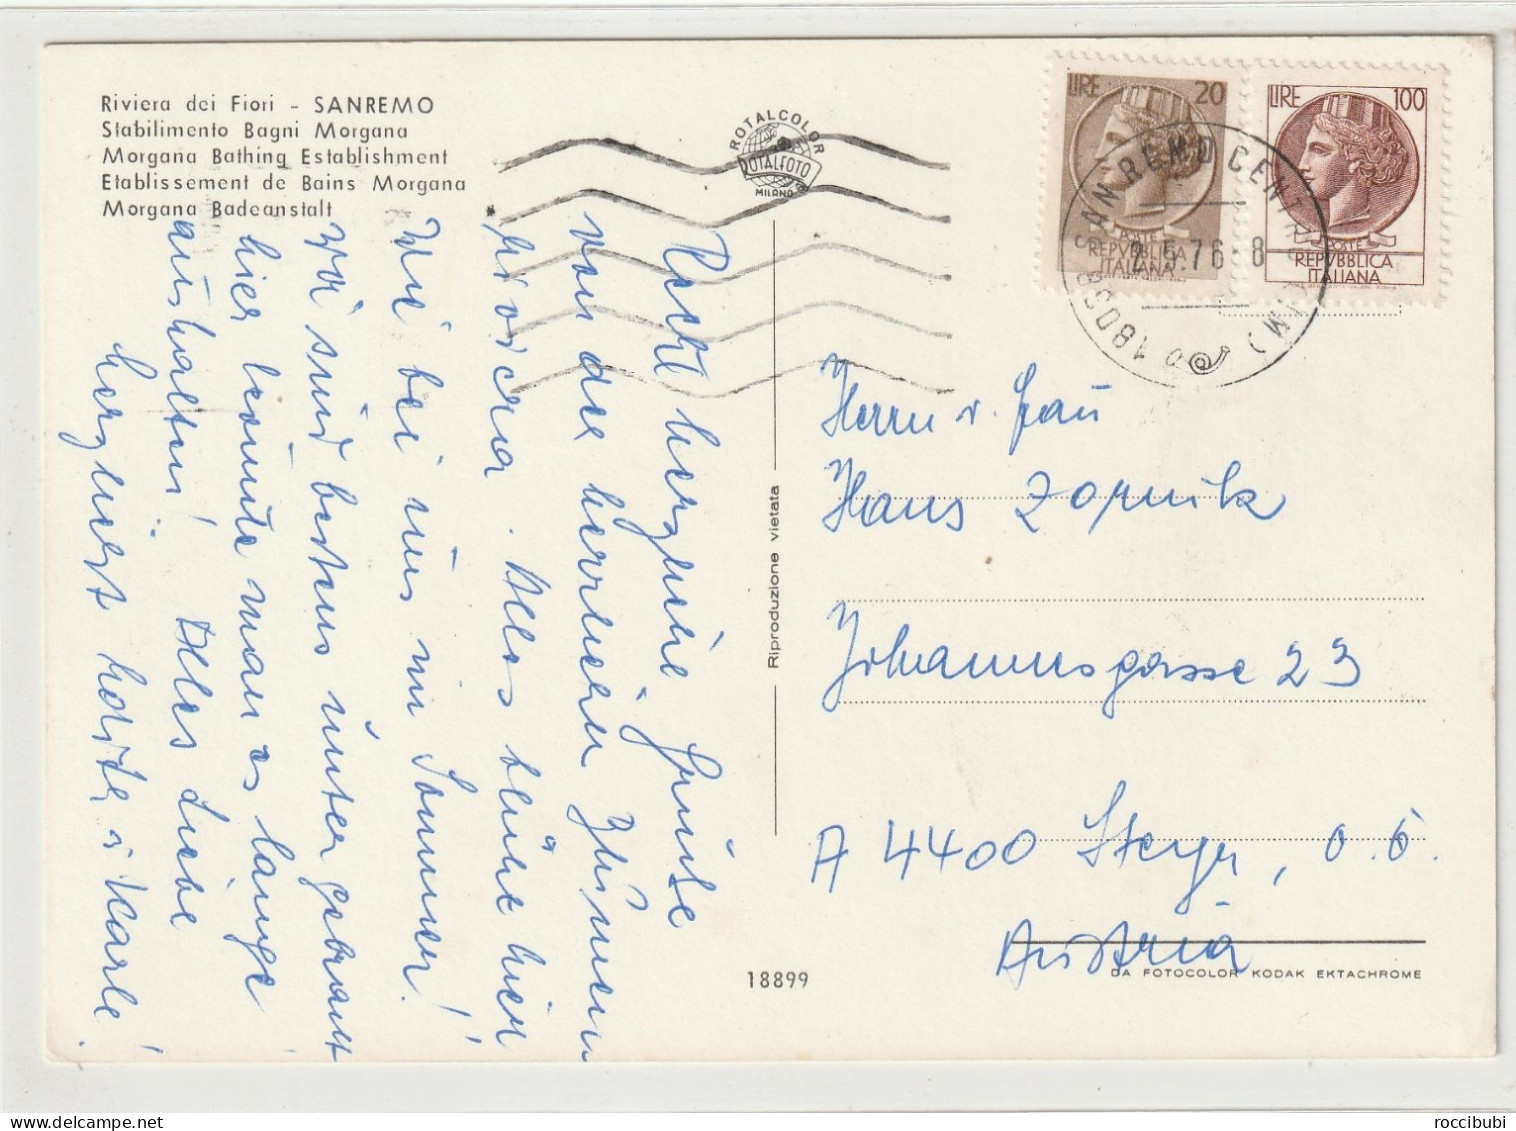 Riviera dei Fiori - SANREMO
Stabilimento Bagni Morgana
Morgana Bathing Establishment
Etablissement de Bains Morgana
Morgana Badeanstalt
ROTALCOLOR
ROTALFOTO
MILANO
LIRE 20
POSTE
REPVBBLICA
ITALIANA
LIRE 100
POSTE
REPVBBLICA
ITALIANA
SANREMO CENTR (IM)
2.5.76 8
18038
Recht herzliche Grüße
von der herrlichen Blumen
riviera. Alles blüht hier
wie bei uns im Sommer!
Wir sind bestens untergebracht
hier könnte man es länger
aushalten! Alles Liebe
herzliest Karli!
Herrn u. Frau
Hans Zopnik
Johannesgasse 23
A 4400 Steyr, O.Ö.
Austria
Riproduzione vietata
18899
DA FOTOCOLOR KODAK EKTACHROME
roccibubi